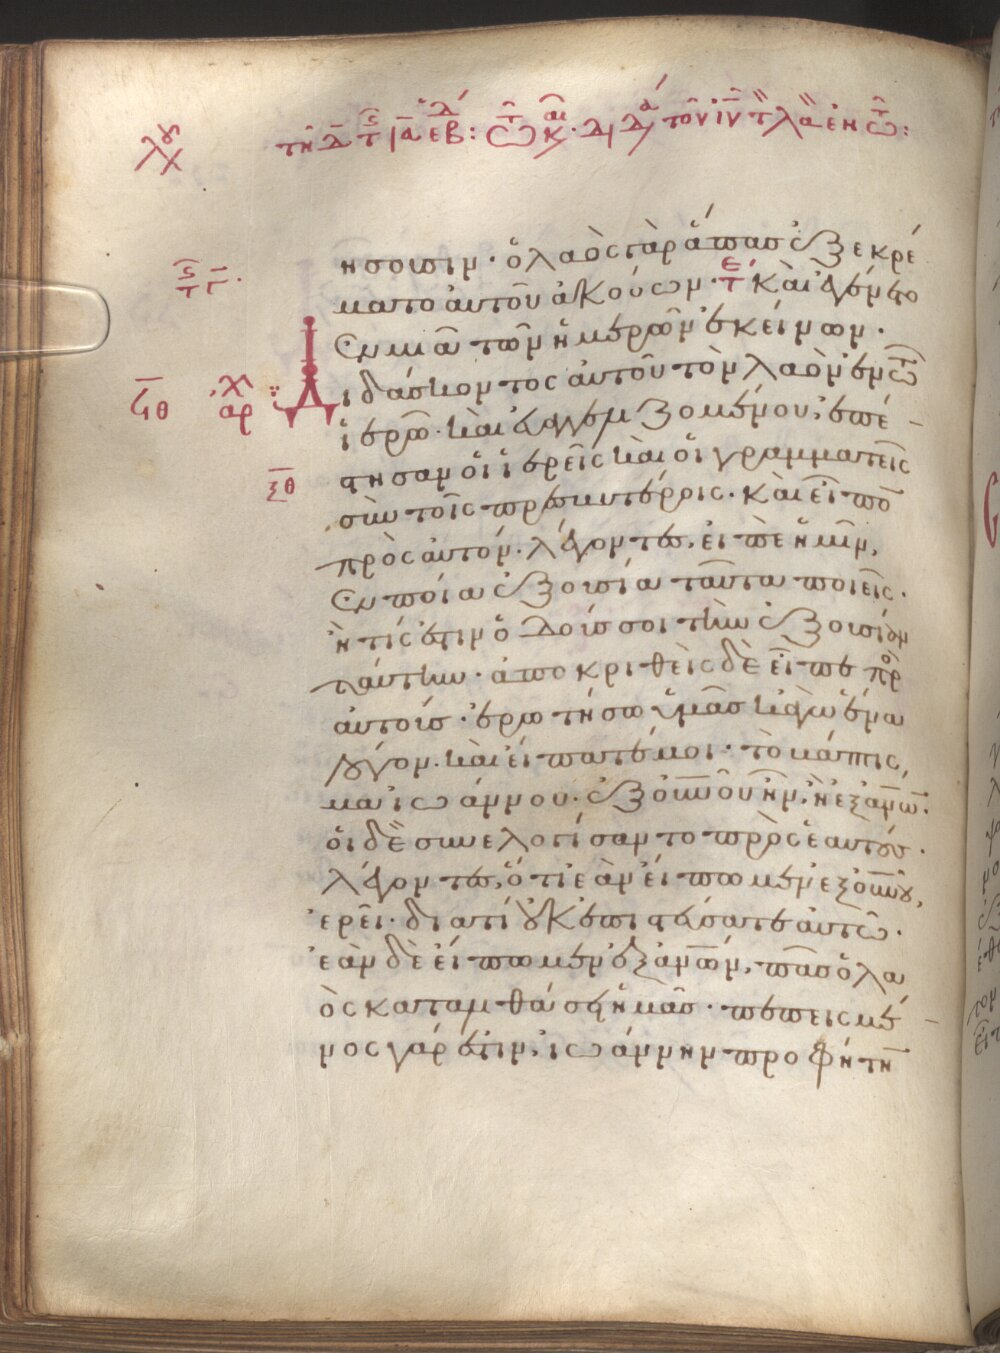 ήσουσιν· ὁ λαὸς γὰρ ἅπας ἐξεκρέ
ματο αὐτοῦ ἀκούων· τε καὶ ἐγένετο
ἐν μιᾶ τῶν ἡμερῶν ἐκείνων·
διδάσκοντος αὐτοῦ τὸν λαὸν ἐν τῶ
ἱερῶ· καὶ εὐαγγελιζομένου, ἐπέ
στησαν οἱ ἱερεῖς καὶ οἱ γραμματεῖς
σὺν τοῖς πρεσβυτέροις· καὶ εἶπον
πρὸς αὐτόν· λέγοντες, εἰπὲ ἡμῖν,
ἐν ποία ἐξουσία ταῦτα ποιεῖς·
ἢ τίς ἐστιν ὁ δούς σοι τὴν ἐξουσίαν
ταύτην· ἀποκριθεὶς δὲ εἶπε πρ
αὐτούς· ἐρωτήσω ὑμᾶς κἀγὼ ἕνα
λόγον· καὶ εἴπατέ μοι· τὸ βάπτισ
μα ἰωάννου· ἐξ οὐνοῦ ἦν, ἢ ἐξ ἀνων·
οἱ δὲ συνελογίσαντο πρὸς ἑαυτούς·
λέγοντες, ὅτι ἐὰν εἴπωμεν ἐξ οὐνοῦ,
ἐρεῖ· διατί οὐκ ἐπιστεύσατε αὐτῶ·
ἐὰν δὲ εἴπωμεν ἐξ ἀνων, πᾶς ὁ λα
ὸς καταλιθάσει ἡμᾶς· πεπεισμέ
νος γάρ ἐστιν, ἰωάννην προφήτην